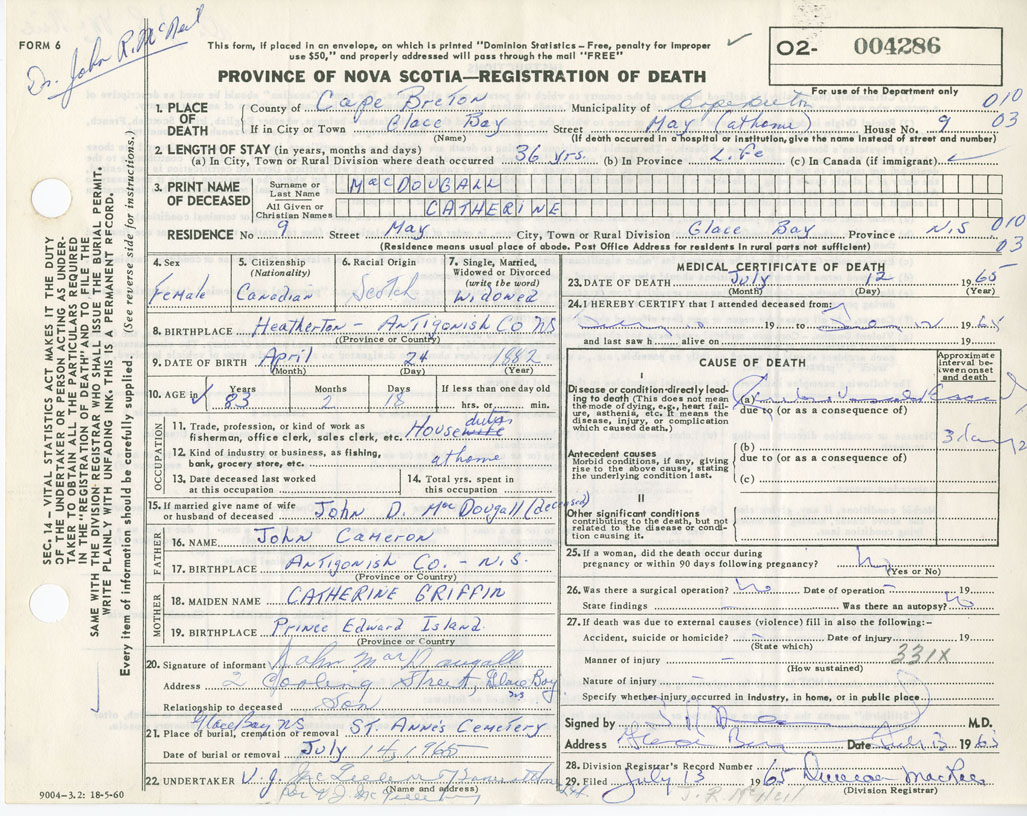 Dr. John R. McNeil
FORM 6
This form, if placed in an envelope, on which is printed "Dominion Statistics—Free, penalty for improper
use $50," and properly addressed will pass through the mail "FREE"
O2- 004286
For use of the Department only
PROVINCE OF NOVA SCOTIA—REGISTRATION OF DEATH
SEC. 14 - VITAL STATISTICS ACT MAKES IT THE DUTY
OF THE UNDERTAKER OR PERSON ACTING AS UNDER-
TAKER TO OBTAIN ALL THE PARTICULARS REQUIRED
IN THE "REGISTRATION OF DEATH" AND TO FILE THE
SAME WITH THE DIVISION REGISTRAR WHO SHALL ISSUE THE BURIAL PERMIT.
WRITE PLAINLY WITH UNFADING INK. THIS IS A PERMANENT RECORD.
Every item of information should be carefully supplied. (See reverse side for instructions.)
1. PLACE OF DEATH
County of Cape Breton Municipality of Cape Breton 010
If in City or Town Glace Bay Street May (at home) House No. 9 03
(Name) (If death occurred in a hospital or institution, give the name instead of street and number)
2. LENGTH OF STAY (in years, months and days)
(a) In City, Town or Rural Division where death occurred 36 yrs. (b) In Province Life (c) In Canada (if immigrant)
3. PRINT NAME OF DECEASED
Surname or Last Name MacDOUGALL
All Given or Christian Names CATHERINE
RESIDENCE No 9 Street May City, Town or Rural Division Glace Bay Province N.S 010
(Residence means usual place of abode. Post Office Address for residents in rural parts not sufficient) 03
4. Sex Female
5. Citizenship (Nationality) Canadian
6. Racial Origin Scotch
7. Single, Married, Widowed or Divorced (write the word) Widowed
8. BIRTHPLACE Heatherton - Antigonish Co NS
(Province or Country)
9. DATE OF BIRTH April 24 1882
(Month) (Day) (Year)
10. AGE in Years 83 Months 2 Days 18 If less than one day old hrs. or min.
OCCUPATION
11. Trade, profession, or kind of work as
fisherman, office clerk, sales clerk, etc. Housewife duties
12. Kind of industry or business, as fishing,
bank, grocery store, etc. at home
13. Date deceased last worked
at this occupation
14. Total yrs. spent in
this occupation
15. If married give name of wife
or husband of deceased John D. MacDougall (deceased)
FATHER
16. NAME John Cameron
17. BIRTHPLACE Antigonish Co. - N.S.
(Province or Country)
MOTHER
18. MAIDEN NAME CATHERINE GRIFFIN
19. BIRTHPLACE Prince Edward Island
(Province or Country)
20. Signature of informant John MacDougall
Address 2 Street, Glace Bay NS
Relationship to deceased Son
Glace Bay NS
21. Place of burial, cremation or removal ST. ANNE'S CEMETERY
Date of burial or removal July 14, 1965
22. UNDERTAKER V. J.
(Name and address)
9004-3.2: 18-5-60
MEDICAL CERTIFICATE OF DEATH
23. DATE OF DEATH July 12 1965
(Month) (Day) (Year)
24. I HEREBY CERTIFY that I attended deceased from:
19 to 1965
and last saw h alive on 19
CAUSE OF DEATH
Approximate interval between onset and death
I
Disease or condition directly lead-
ing to death (This does not mean
the mode of dying, e.g., heart fail-
ure, asthenia, etc. It means the
disease, injury, or complication
which caused death.)
(a)
due to (or as a consequence of)
Antecedent causes
Morbid conditions, if any, giving
rise to the above cause, stating
the underlying condition last.
(b) 3 days
due to (or as a consequence of)
(c)
II
Other significant conditions
contributing to the death, but not
related to the disease or condi-
tion causing it.
25. If a woman, did the death occur during
pregnancy or within 90 days following pregnancy? No
(Yes or No)
26. Was there a surgical operation? No Date of operation 19
State findings Was there an autopsy? No
27. If death was due to external causes (violence) fill in also the following:-
Accident, suicide or homicide? Date of injury 19
(State which)
Manner of injury 331X
(How sustained)
Nature of injury
Specify whether injury occurred in industry, in home, or in public place
Signed by M.D.
Address Glace Bay Date July 13 1965
28. Division Registrar's Record Number
29. Filed July 13 1965 Duncan
(Division Registrar)